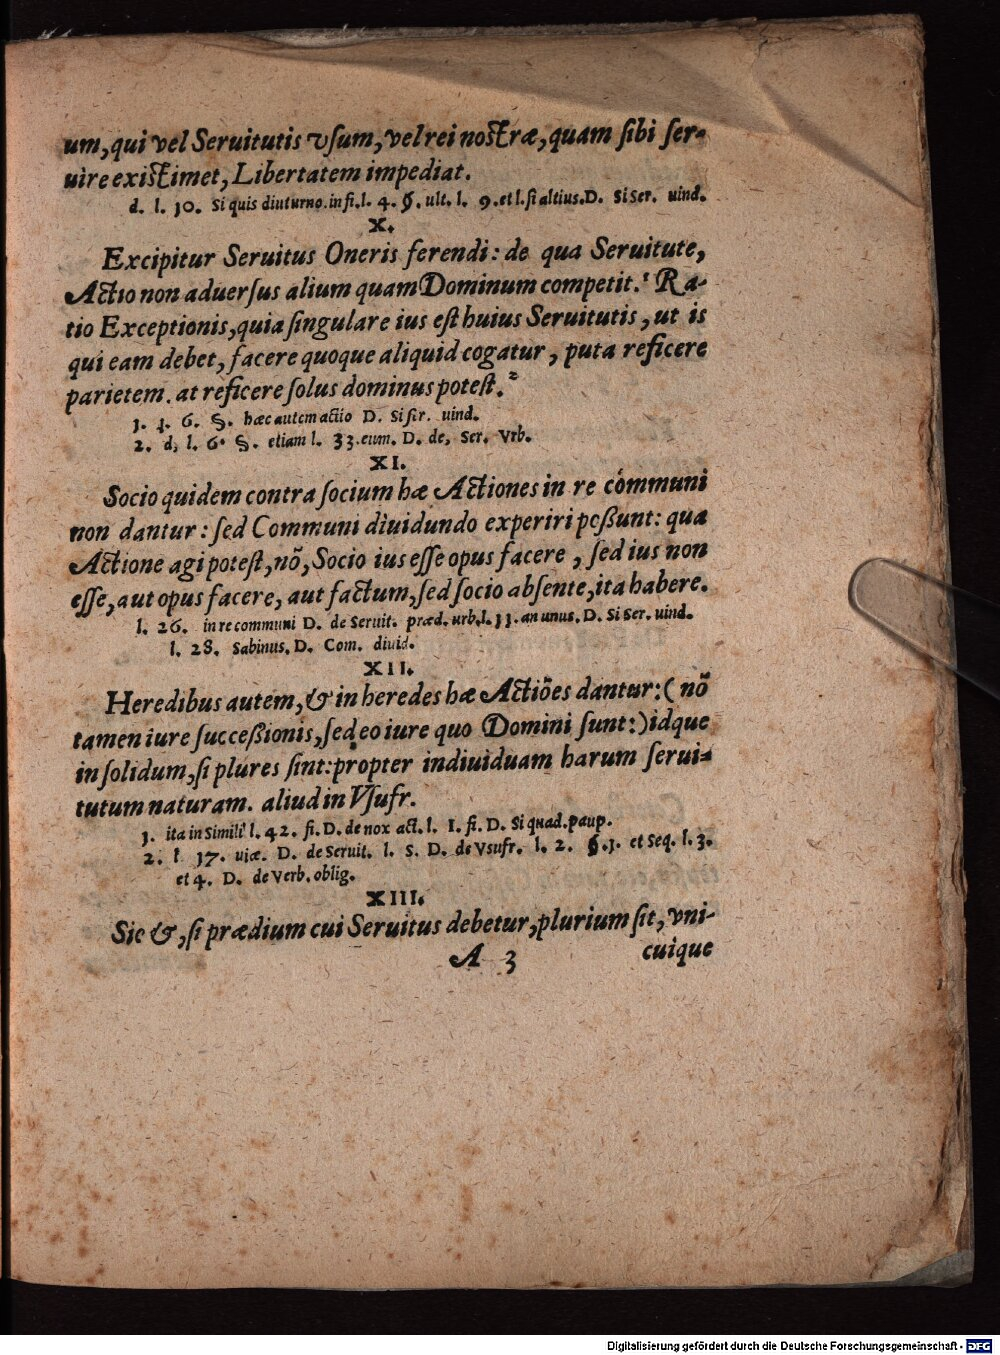 um, qui vel Seruitutis vsum, vel rei nostræ, quam sibi ser-
uire existimet, Libertatem impediat.
d. l. 10. Si quis diuturno. in fi. l. 4. §. ult. l. 9. et l. si altius. D. Si Ser. uind.
X.
Excipitur Seruitus Oneris ferendi: de qua Seruitute,
Actio non aduersus alium quam Dominum competit.¹ Ra-
tio Exceptionis, quia singulare ius est huius Seruitutis, ut is
qui eam debet, facere quoque aliquid cogatur, puta reficere
parietem. at reficere solus dominus potest.²
1. l. 6. §. hæc autem actio D. Si ser. uind.
2. d, l. 6. §. etiam l. 33. eum. D. de, Ser. Vrb.
XI.
Socio quidem contra socium hæ Actiones in re communi
non dantur: sed Communi diuidundo experiri poßunt: qua
Actione agi potest, nõ, Socio ius esse opus facere, sed ius non
esse, aut opus facere, aut factum, sed socio absente, ita habere.
l. 26. in re communi D. de Seruit. præd. urb. l. 11. an unus. D. Si Ser. uind.
l. 28. Sabinus. D. Com. diuid.
XII.
Heredibus autem, & in heredes hæ Actiões dantur: (nõ
tamen iure succeßionis, sed eo iure quo Domini sunt:) idque
in solidum, si plures sint: propter indiuiduam harum serui-
tutum naturam. aliud in Vsufr.
1. ita in Simili l. 42. fi. D. de nox act. l. 1. fi. D. Si quad. paup.
2. l 17. uiæ. D. de Seruit. l. 5. D. de Vsufr. l. 2. §. 1. et Seq. l. 3.
et 4. D. de Verb. oblig.
XIII.
Sic &, si prædium cui Seruitus debetur, plurium sit, vni-
A 3 cuique
Digitalisierung gefördert durch die Deutsche Forschungsgemeinschaft - DFG